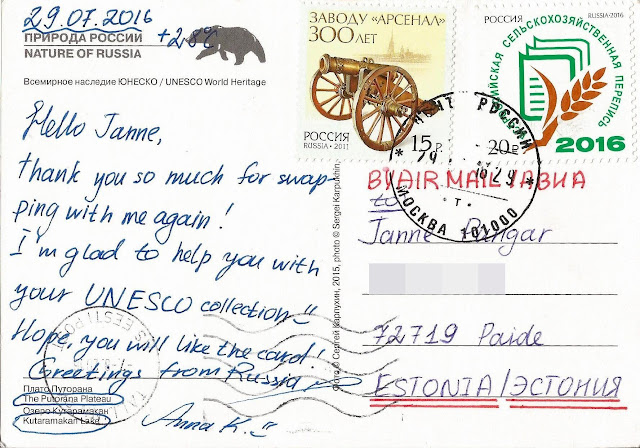 29.07.2016
+28°C
ПРИРОДА РОССИИ
NATURE OF RUSSIA
Всемирное наследие ЮНЕСКО / UNESCO World Heritage
Hello Janne,
thank you so much for swap-
ping with me again!
I'm glad to help you with
your UNESCO collection
Hope, you will like the card!
Greetings from Russia
Anna K.
Плато Путорана
The Putorana Plateau
Озеро Кутарамакан
Kutaramakan Land
Фото © Сергей Карпухин, 2015, photo © Sergei Karpukhin
ЗАВОДУ «АРСЕНАЛ»
300 ЛЕТ
РОССИЯ
RUSSIA • 2011
15 р.
РОССИЯ
RUSSIA•2016
СЕЛЬСКОХОЗЯЙСТВЕННАЯ ПЕРЕПИСЬ
20 р.
2016
РОССИИ
МОСКВА 101000
BY AIR MAIL / АВИА
to
Janne
72719 Paide
ESTONIA / ЭСТОНИЯ
EESTI POST